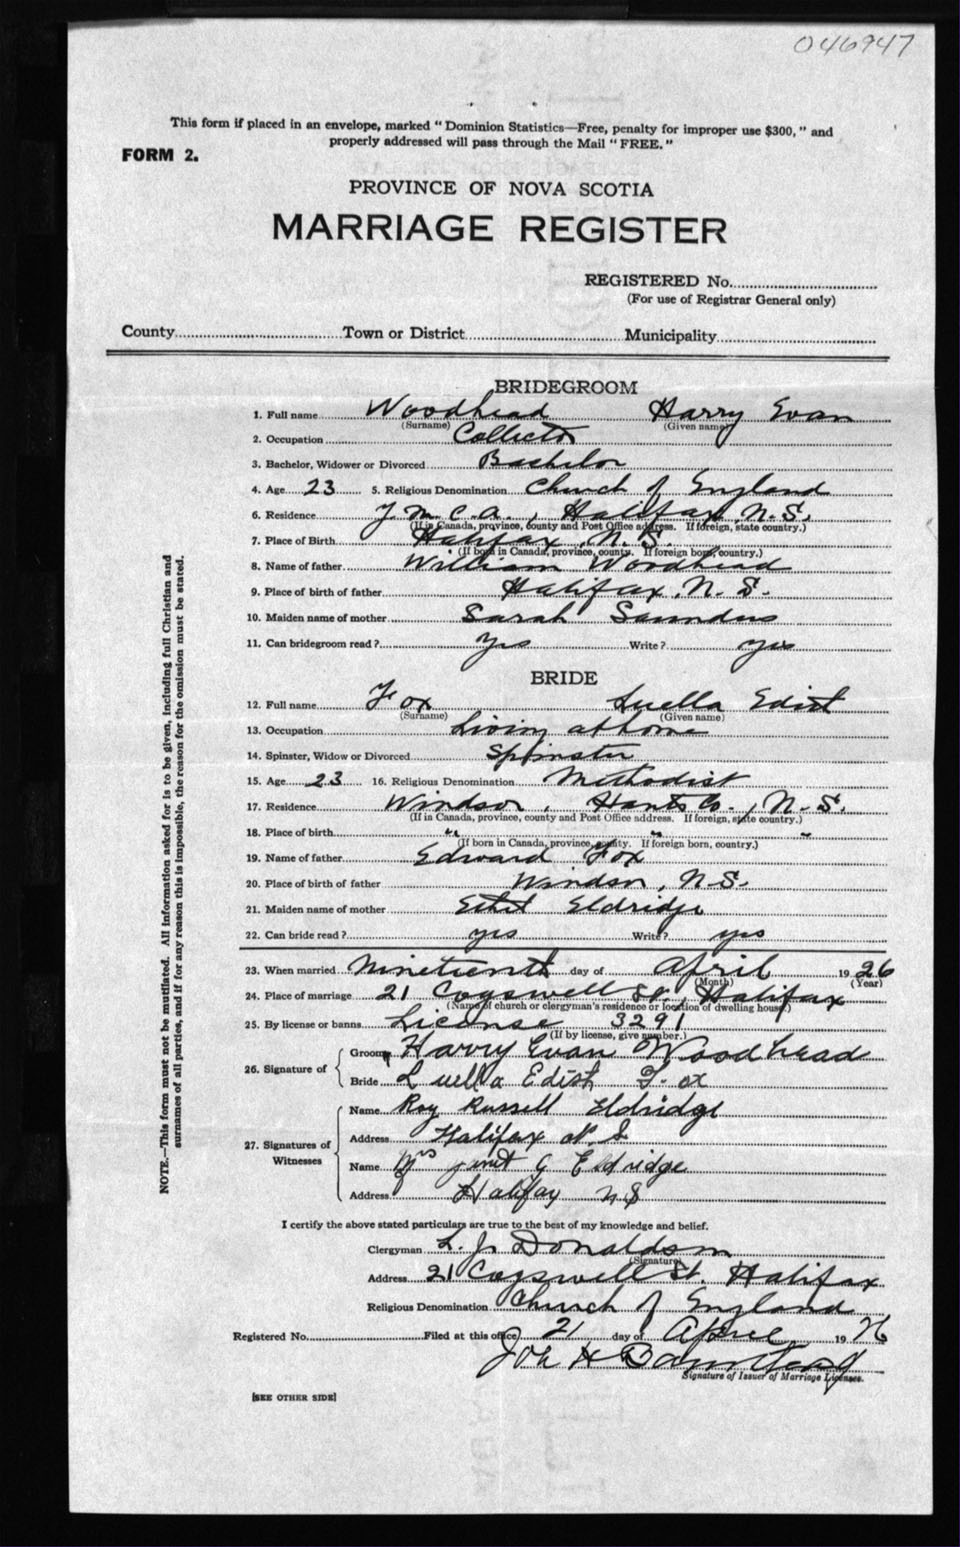 046947
This form if placed in an envelope, marked "Dominion Statistics—Free, penalty for improper use $300," and
properly addressed will pass through the Mail "FREE."
FORM 2.
PROVINCE OF NOVA SCOTIA
MARRIAGE REGISTER
REGISTERED No.
(For use of Registrar General only)
County Town or District Municipality
BRIDEGROOM
1. Full name Woodhead Harry Evan
(Surname) (Given name)
2. Occupation Collector
3. Bachelor, Widower or Divorced Bachelor
4. Age 23 5. Religious Denomination Church of England
6. Residence Y.M.C.A., Halifax, N.S.
(If in Canada, province, county and Post Office address. If foreign, state country.)
7. Place of Birth Halifax, N.S.
(If born in Canada, province, county. If foreign born, country.)
8. Name of father William Woodhead
9. Place of birth of father Halifax, N.S.
10. Maiden name of mother Sarah Saunders
11. Can bridegroom read? Yes Write? yes
BRIDE
12. Full name Fox Luella Edist
(Surname) (Given name)
13. Occupation Living at home
14. Spinster, Widow or Divorced Spinster
15. Age 23 16. Religious Denomination Methodist
17. Residence Windsor, Hants Co., N.S.
(If in Canada, province, county and Post Office address. If foreign, state country.)
18. Place of birth " " "
(If born in Canada, province, county. If foreign born, country.)
19. Name of father Edward Fox
20. Place of birth of father Windsor, N.S.
21. Maiden name of mother Eldridge
22. Can bride read? yes Write? yes
23. When married Nineteenth day of April 1926
(Month) (Year)
24. Place of marriage 21 Cogswell St., Halifax
(Name of church or clergyman's residence or location of dwelling house.)
25. By license or banns License 3291
(If by license, give number.)
26. Signature of Groom Harry Evan Woodhead
Bride Luella Edish Fox
27. Signatures of Witnesses
Name Roy Russell Eldridge
Address Halifax N.S
Name Mrs Janet G Eldridge
Address Halifax N.S
I certify the above stated particulars are true to the best of my knowledge and belief.
Clergyman L. J. Donaldson
(Signature)
Address 21 Cogswell St. Halifax
Religious Denomination Church of England
Registered No. Filed at this office 21 day of April 1926
Signature of Issuer of Marriage Licenses.
[SEE OTHER SIDE]
NOTE.—This form must not be mutilated. All information asked for is to be given, including full Christian and
surnames of all parties, and if for any reason this is impossible, the reason for the omission must be stated.